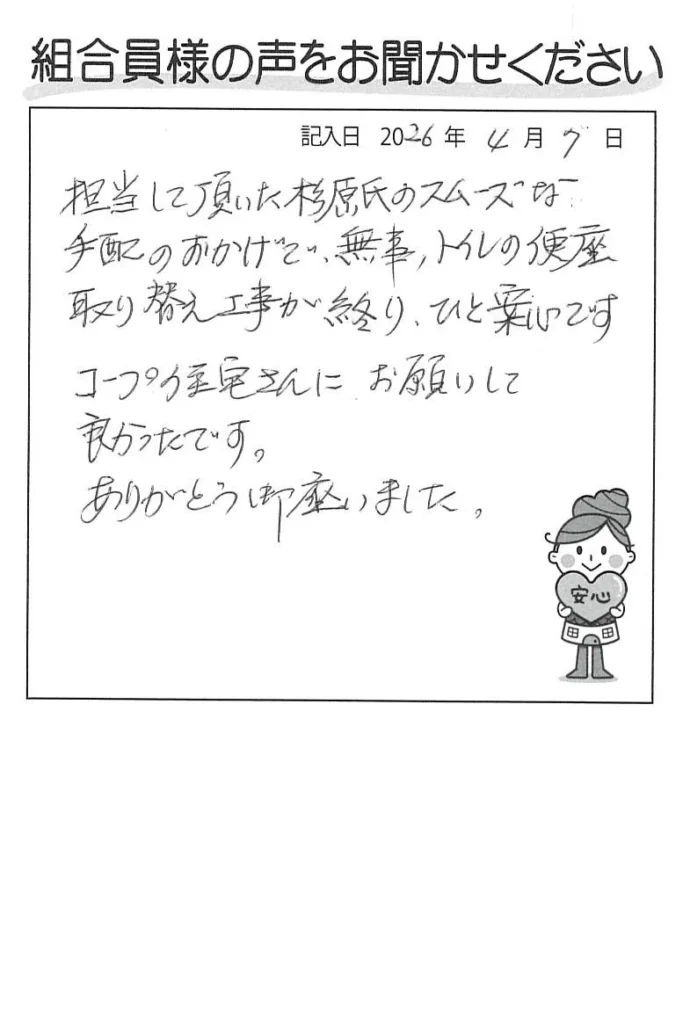 組合員様の声をお聞かせください
記入日 2026年 4月 7日
担当して頂いた杉原氏のスムーズな
手配のおかげで、無事、トイレの便座
取り替え工事が終り、ひと安心です
コープ住宅さんに お願いして
良かったです。
ありがとう御座いました。
安心